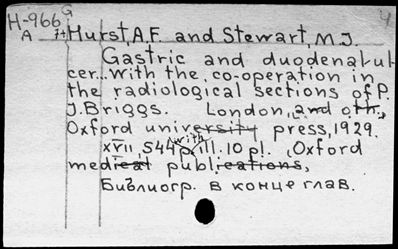 H-966 G 4
A i+ Hurst, A.F. and Stewart, M.J.
Gastric and duodenal ul
cer... with the co-operation in
the radiological sections of P.
J. Briggs. London, and oth.,
Oxford university press, 1929.
XVII, 544 p. with ill. 10 pl. (Oxford
medical publications,
Библиогр. в конце глав.